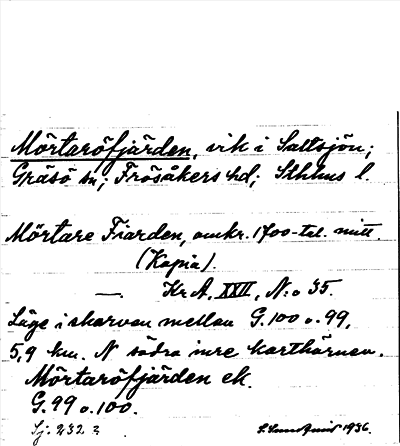 Mörtaröfjärden, vik i Saltsjön;
Gräsö sn; Frösåkers hd; Sthlms l.
Mörtare Fiarden, omkr. 1700-tal. mitt.
(Kopia).
—. Kr A, XXII, N:o 35.
Läge i skarven mellan G. 100 o. 99,
5,9 km. N södra inre karthörnen.
Mörtaröfjärden ek.
G. 99 o. 100.
Sj. 232 ?
1936.